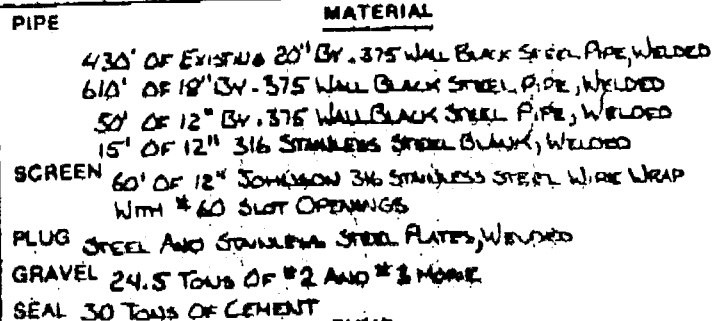 MATERIAL
PIPE
430' OF EXISTING 20" BY .375 WALL BLACK STEEL PIPE, WELDED
610' OF 18" BY .375 WALL BLACK STEEL PIPE, WELDED
50' OF 12" BY .375 WALL BLACK STEEL PIPE, WELDED
15' OF 12" 316 STAINLESS STEEL BLANK, WELDED
SCREEN 60' OF 12" JOHNSON 316 STAINLESS STEEL WIRE WRAP
WITH #60 SLOT OPENINGS
PLUG STEEL AND STAINLESS STEEL PLATES, WELDED
GRAVEL 24.5 TONS OF #2 AND #3 MORIE
SEAL 30 TONS OF CEMENT